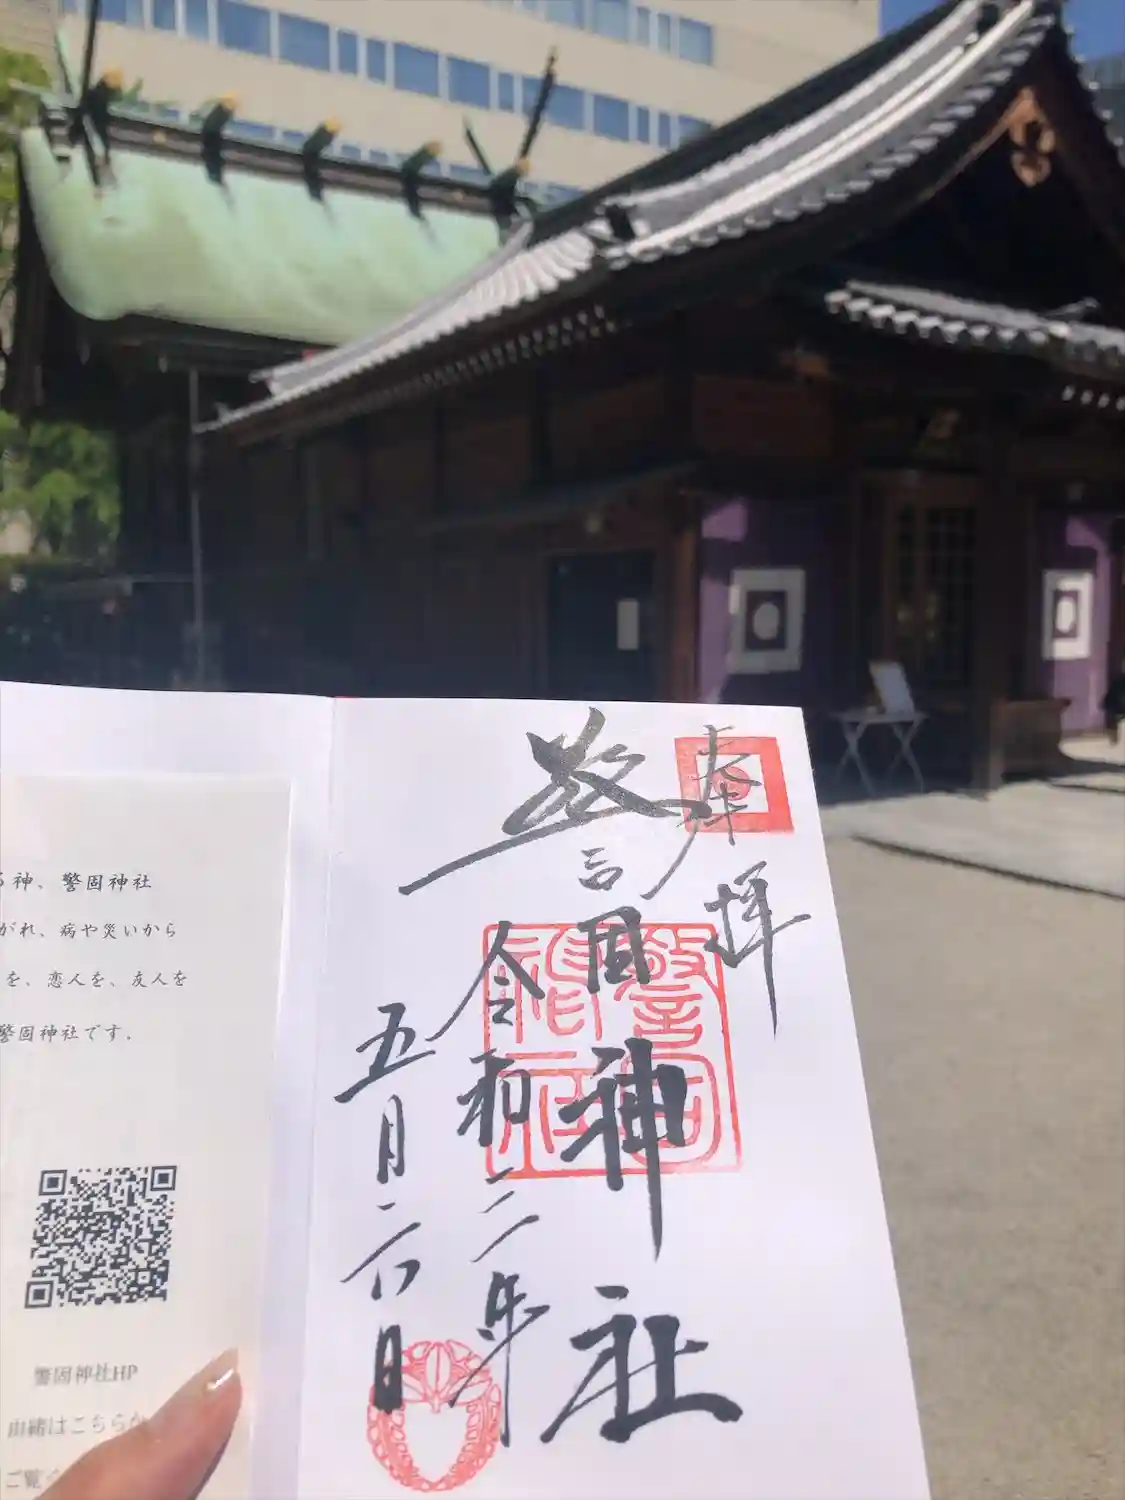 奉拝
警固神社
令和二年
五月六日
警固神社
る神、警固神社
がれ、病や災いから
を、恋人を、友人を
警固神社です。
警固神社HP
由緒はこちらか
ご覧く